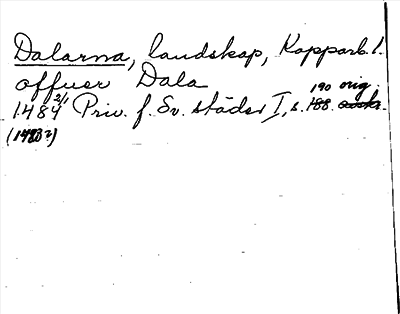 Dalarna, landskap, Kopparb. l.
offuer Dala
1484 2/1 Priv. f. Sv. städer I, s. 188 190 orig.
(1483?)